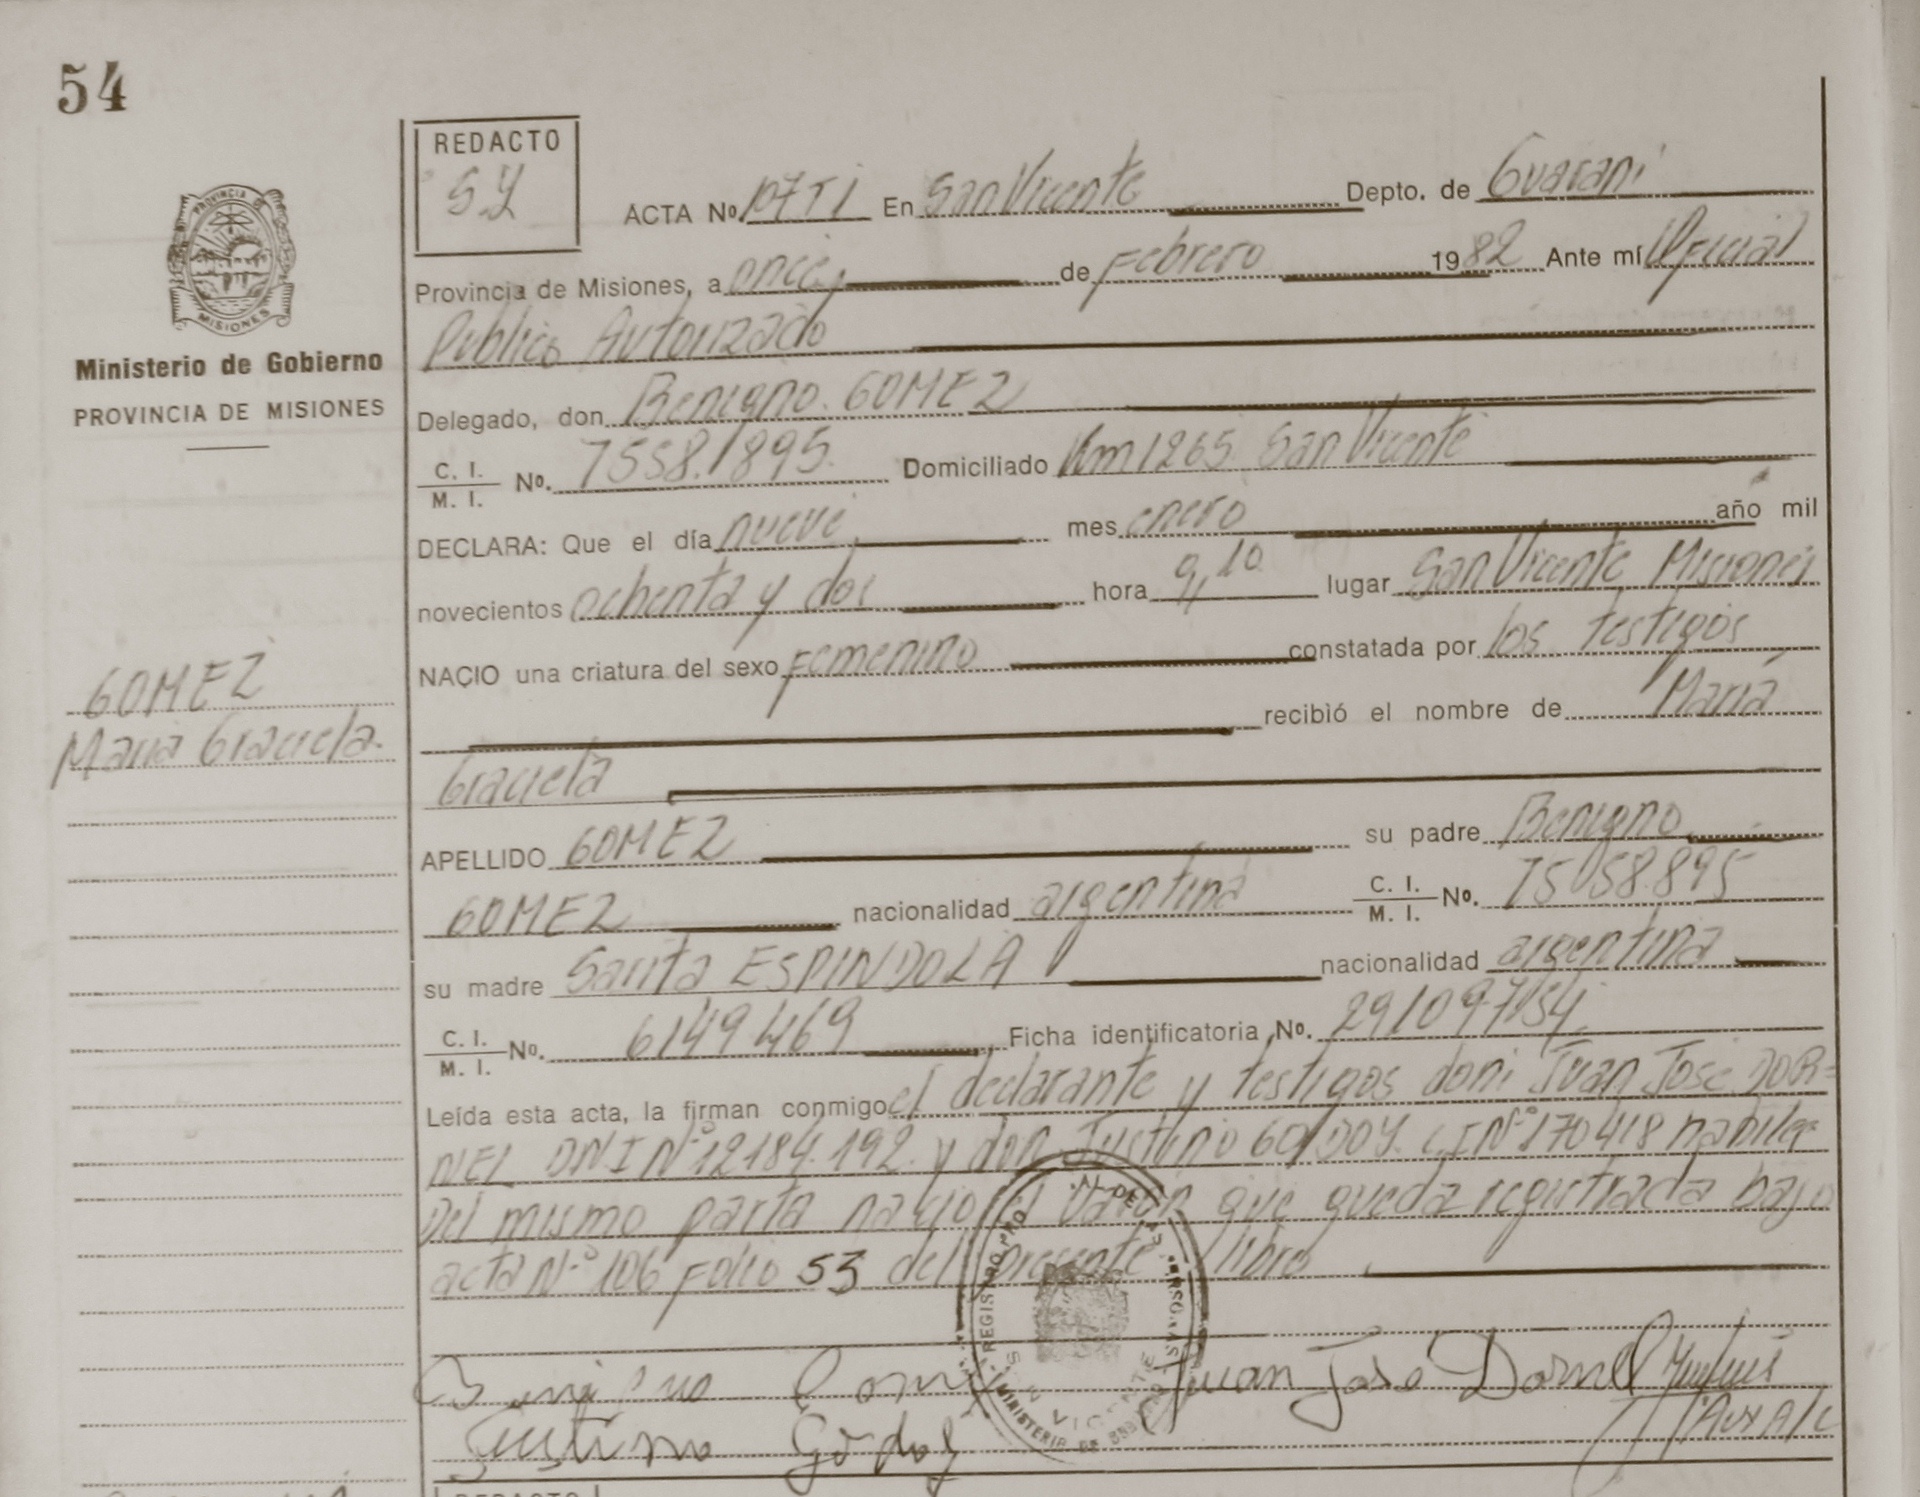 54
REDACTO
S.Y
ACTA No. 107 T I En San Vicente Depto. de Guaraní
Provincia de Misiones, a once, de Febrero 1982 Ante mí Oficial
Público Autorizado
Delegado, don Benigno GOMEZ
C. I. / M. I. No. 7558.895. Domiciliado Km 1265 San Vicente
DECLARA: Que el día nueve, mes enero año mil
novecientos ochenta y dos hora 9,10 lugar San Vicente Misiones
NACIO una criatura del sexo Femenino constatada por los testigos
recibió el nombre de María
Graciela
APELLIDO GOMEZ su padre Benigno
GOMEZ nacionalidad argentina C. I. / M. I. No.
su madre Sarita ESPINDOLA nacionalidad argentina
C. I. / M. I. No. 6149469 Ficha identificatoria No.
Leída esta acta, la firman conmigo el declarante y testigos don: Juan José DOR=
NEL DNI Nº 12184.192. y don Justino GODOY. C.I Nº 170418
Del mismo parto nacio el varon que queda registrada bajo
acta Nº 106 Folio 53 del presente libro
PROVINCIA DE
MISIONES
Ministerio de Gobierno
PROVINCIA DE MISIONES
GOMEZ
Maria Graciela.
REGISTRO
MINISTERIO DE GOBIERNO
VICENTE
Benigno Gomez Juan José Dornel
Justino Godoy
REDACTO